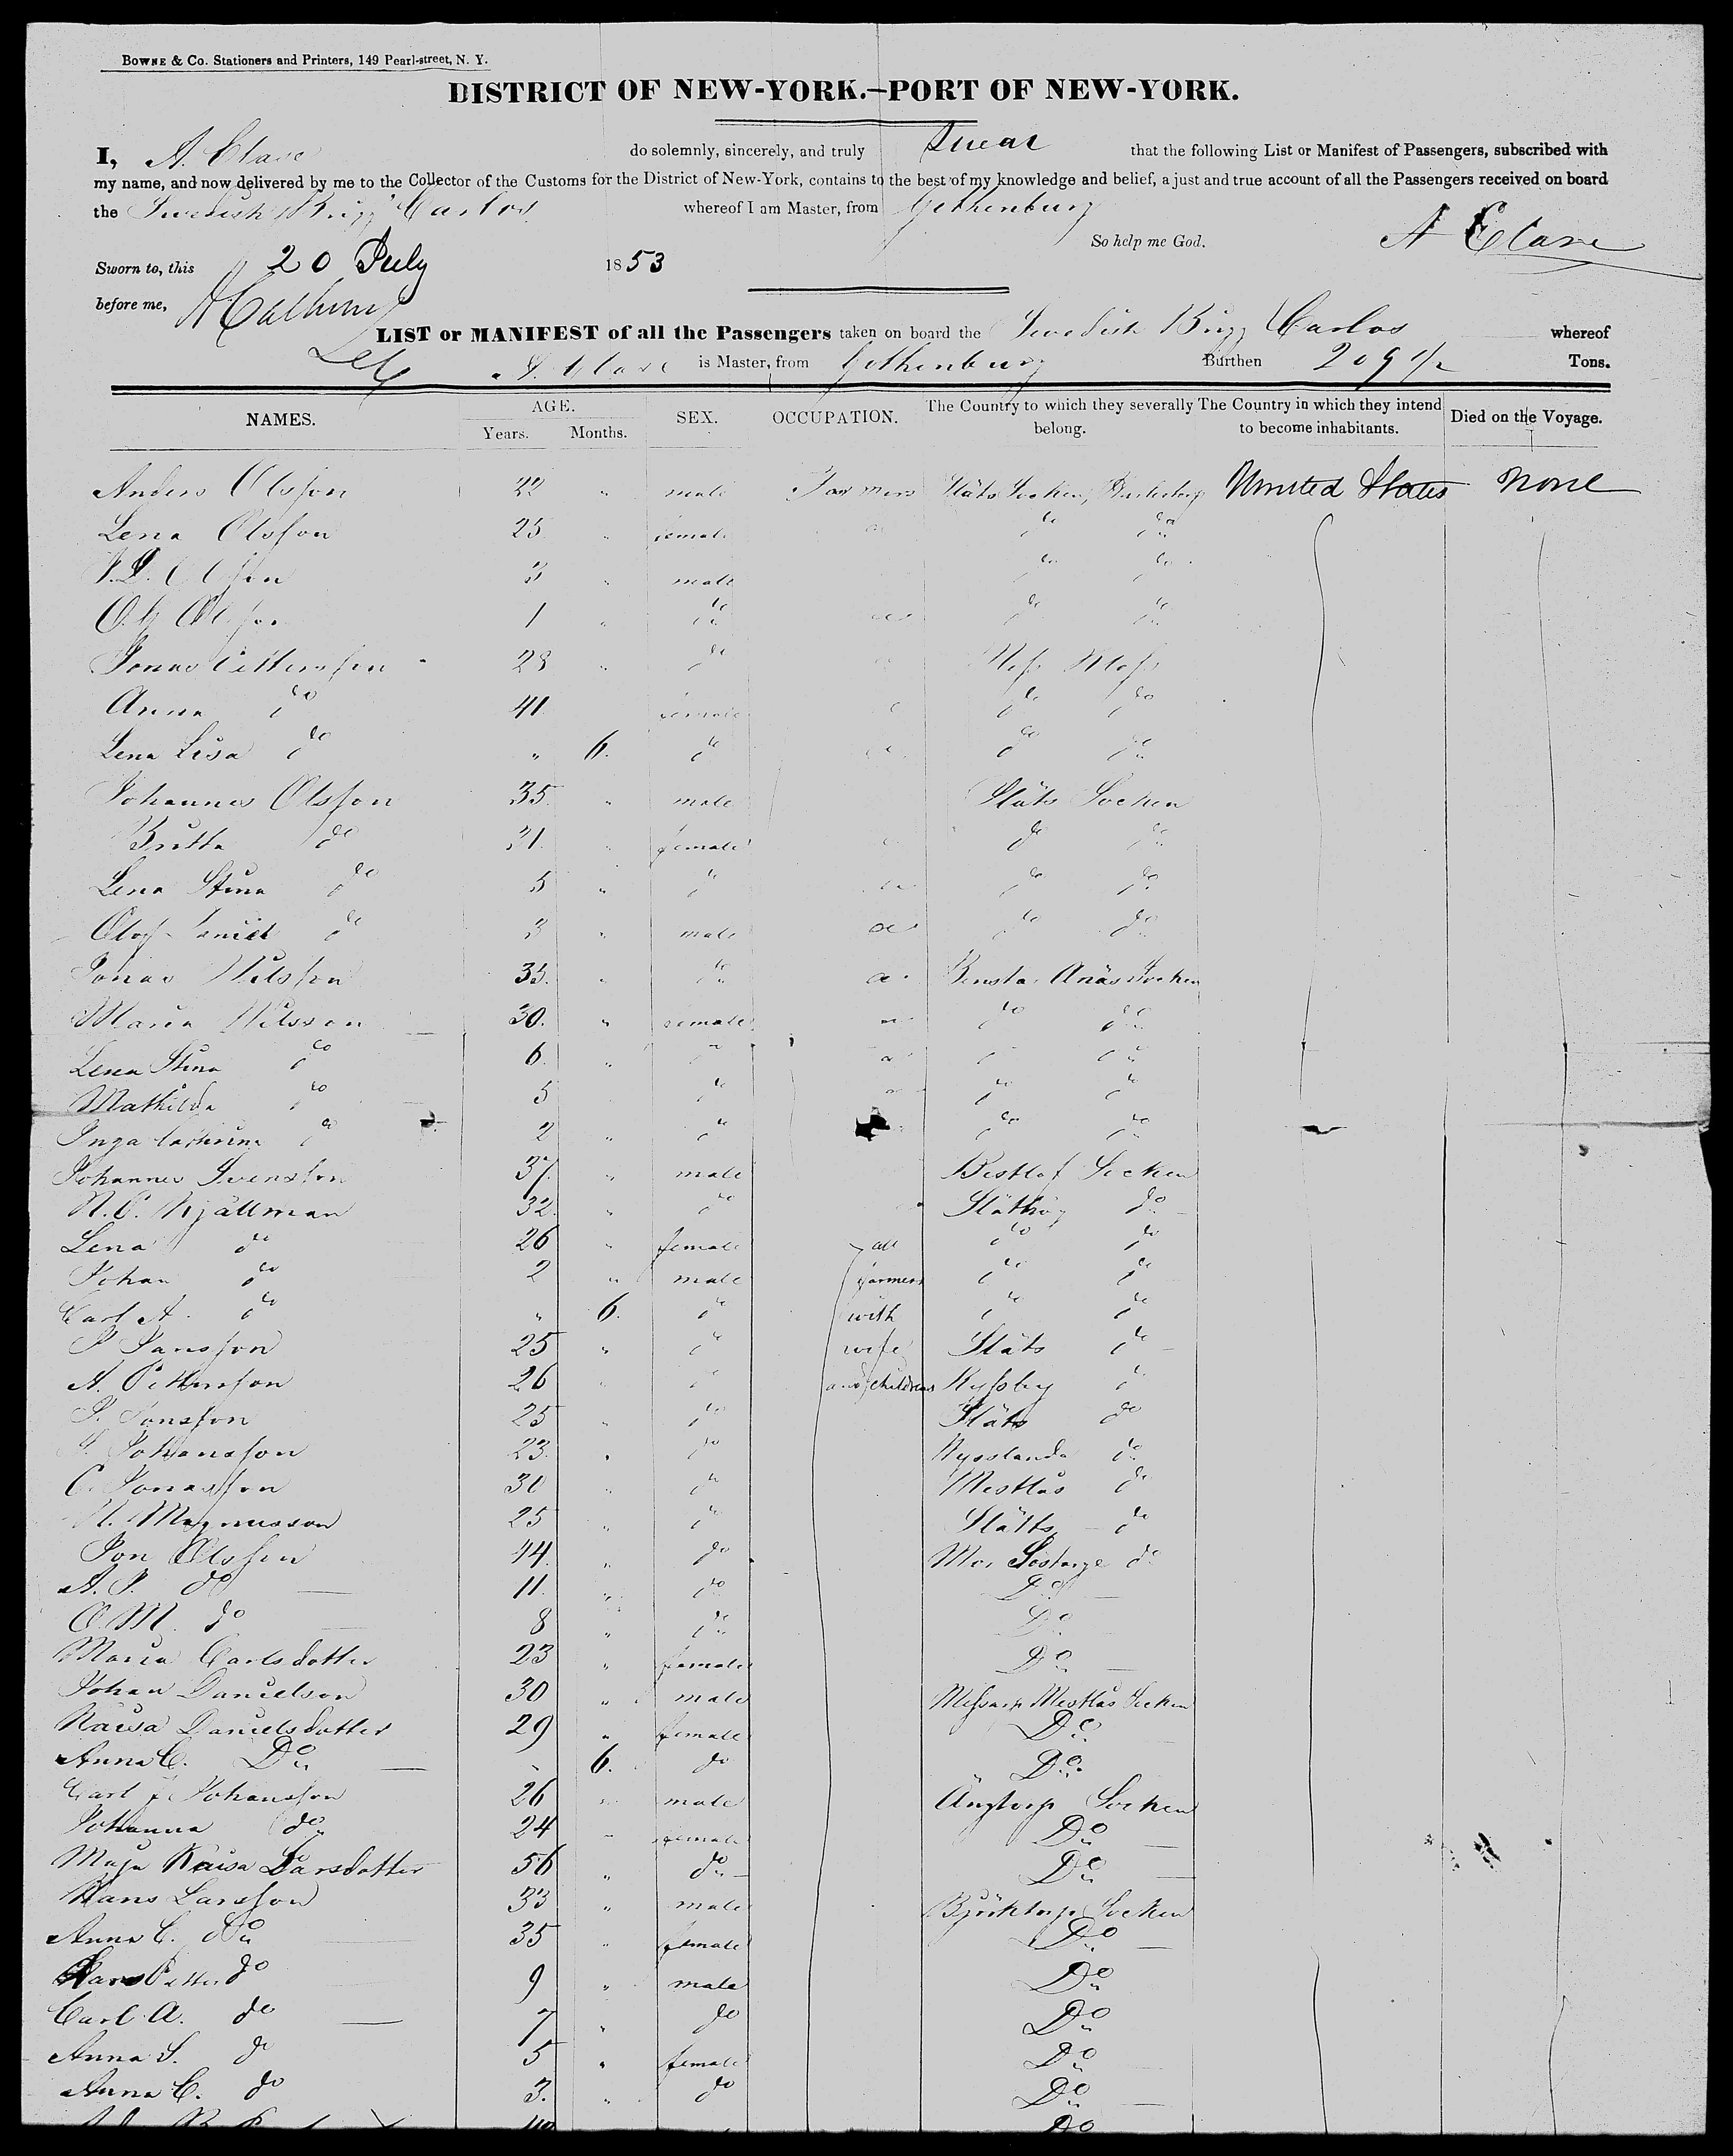 BOWNE & Co. Stationers and Printers, 149 Pearl-street, N. Y.
DISTRICT OF NEW-YORK.—PORT OF NEW-YORK.
I, A. Clase do solemnly, sincerely, and truly Swear that the following List or Manifest of Passengers, subscribed with
my name, and now delivered by me to the Collector of the Customs for the District of New-York, contains to the best of my knowledge and belief, a just and true account of all the Passengers received on board
the Swedish Brigg Carlos whereof I am Master, from Gothenburg
So help me God. A Clase
Sworn to, this 20 July 1853
before me,
LIST or MANIFEST of all the Passengers taken on board the Swedish Brigg Carlos whereof
A. Clase is Master, from Gothenburg Burthen 209 1/2 Tons.
NAMES. AGE. Years. Months. SEX. OCCUPATION. The Country to which they severally belong. The Country in which they intend to become inhabitants. Died on the Voyage.
Anders Olsson 22 " male Farmers Släts Socken, United States None
Lena Olsson 25 " female do do
3 " male do do
1 " do do do
Jonas Pettersson 28 " do
Anna do 41 female do do
Lena Lisa do " 6. do do do
Johannes Olsson 35 " male Släts Socken
Britta do 31 female do do
Lena Stina do 5 " do do do
Olof do 3 " male do do
Jonas Nilsson 35. " do Anäs Socken
Maria Nilsson 30. " female do do
Lena Stina do 6. " do do do
Mathilda do 5 do do do
Inga Cathrina do 2 " do do do
Johannes Svensson 37. " male Socken
N. P. Kjällman 32. " do Släthög do
Lena do 26 " female all do do
Johan do 2 " male farmers do do
Carl A. do " 6. do with do do
P Jansson 25 " do wife Släts do
A. Pettersson 26 " do and childrens Ryssby do
P. Jonsson 25 " do Släts do
Johansson 23. " do Rysslanda do
C. Jonasson 30 " do Mistlås do
N. Magnusson 25 " do Slätts do
Jon Olssen 44. " do do
A. P. do 11. " do Do
O. M. do 8 " do Do
Maria Carlsdotter 23 " female Do
Johan Danielson 30 " male Mistlås Socken
Kaisa Danielsdotter 29 " female Do
Anna C. Do " 6. do Do
Carl J Johansson 26 " male Ängtorp Socken
Johanna do 24 " female Do
Maja Kaisa Larsdotter 56 " do Do
Hans Larsson 33 " male Björktorp Socken
Anna C. Do 35 " female Do
Petter do 9 " male Do
Carl A. do 7 " do Do
Anna S. do 5 " female Do
Anna C. do 3. " do Do
Do